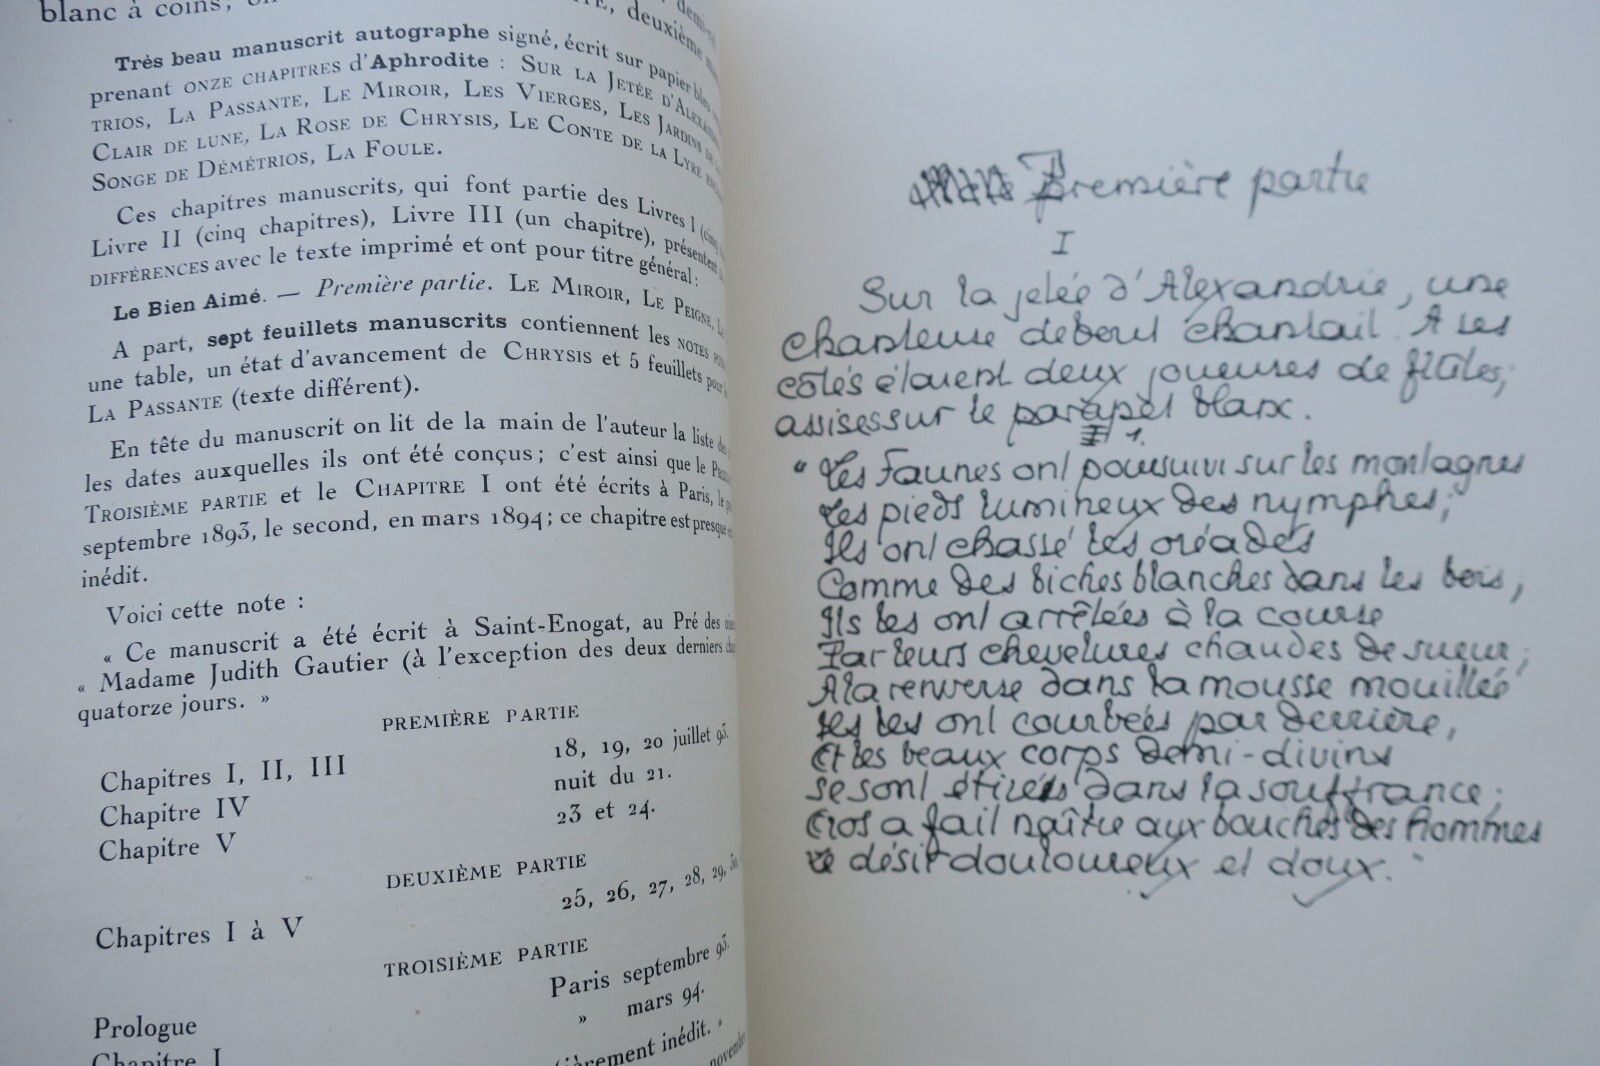 blanc à coins;
deuxième
Très beau manuscrit autographe signé, écrit sur papier bleu
prenant ONZE CHAPITRES d'Aphrodite : SUR LA JETÉE D'ALEXAN
TRIOS, LA PASSANTE, LE MIROIR, LES VIERGES, LES JARDINS DE
CLAIR DE LUNE, LA ROSE DE CHRYSIS, LE CONTE DE LA LYRE
SONGE DE DÉMÉTRIOS, LA FOULE.
Ces chapitres manuscrits, qui font partie des Livres I (cinq
Livre II (cinq chapitres), Livre III (un chapitre), présentent
DIFFÉRENCES avec le texte imprimé et ont pour titre général :
Le Bien Aimé. — Première partie. LE MIROIR, LE PEIGNE,
A part, sept feuillets manuscrits contiennent les NOTES
une table, un état d'avancement de CHRYSIS et 5 feuillets pour
LA PASSANTE (texte différent).
En tête du manuscrit on lit de la main de l'auteur la liste
les dates auxquelles ils ont été conçus ; c'est ainsi que le
TROISIÈME PARTIE et le CHAPITRE I ont été écrits à Paris, le
septembre 1893, le second, en mars 1894 ; ce chapitre est presque
inédit.
Voici cette note :
« Ce manuscrit a été écrit à Saint-Enogat, au Pré des
« Madame Judith Gautier (à l'exception des deux derniers
quatorze jours. »
PREMIÈRE PARTIE
Chapitres I, II, III 18, 19, 20 juillet 93.
Chapitre IV nuit du 21.
Chapitre V 23 et 24.
DEUXIÈME PARTIE
Chapitres I à V 25, 26, 27, 28, 29,
TROISIÈME PARTIE
Prologue Paris septembre 93.
Chapitre I » mars 94.
inédit. »
Première partie
I
Sur la jetée d'Alexandrie, une
chanteuse debout chantait. A ses
côtés étaient deux joueuses de flûtes,
assises sur le parapet blanc.
1.
« Les faunes ont poursuivi sur les montagnes
Les pieds lumineux des nymphes ;
Ils ont chassé les oréades
Comme des biches blanches dans les bois ;
Ils les ont arrêtées à la course
Par leurs chevelures chaudes de sueur ;
A la renverse dans la mousse mouillée
Ils les ont courbées par derrière,
Et les beaux corps demi-divins
se sont étirés dans la souffrance ;
Eros a fait naître aux bouches des hommes
le désir douloureux et doux. »